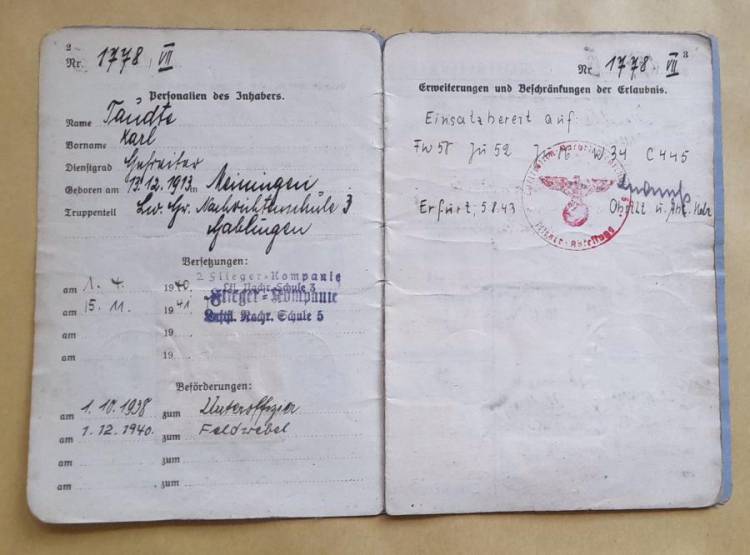 2
Nr. 1778, VII
Personalien des Inhabers.
Name Taudte
Vorname Karl
Dienstgrad Gefreiter
Geboren am 17.12.1913 in Meiningen
Truppenteil Lw. Nachrichtenschule 3
Versetzungen:
2 Flieger-Kompanie
am 1. 4. 1940. Lft. Nachr.-Schule 3
am 15. 11. 1941. Flieger-Kompanie
am 19 Luftfl. Nachr. Schule 5
am 19
Beförderungen:
am 1. 10. 1938 zum Unteroffizier
am 1. 12. 1940. zum Feldwebel
am zum
am zum
3
Nr. 1778 VII
Erweiterungen und Beschränkungen der Erlaubnis.
Einsatzbereit auf
Fw 58 Ju 52 W 34 C 445
Erfurt, 5.8.43 Obltl. u.